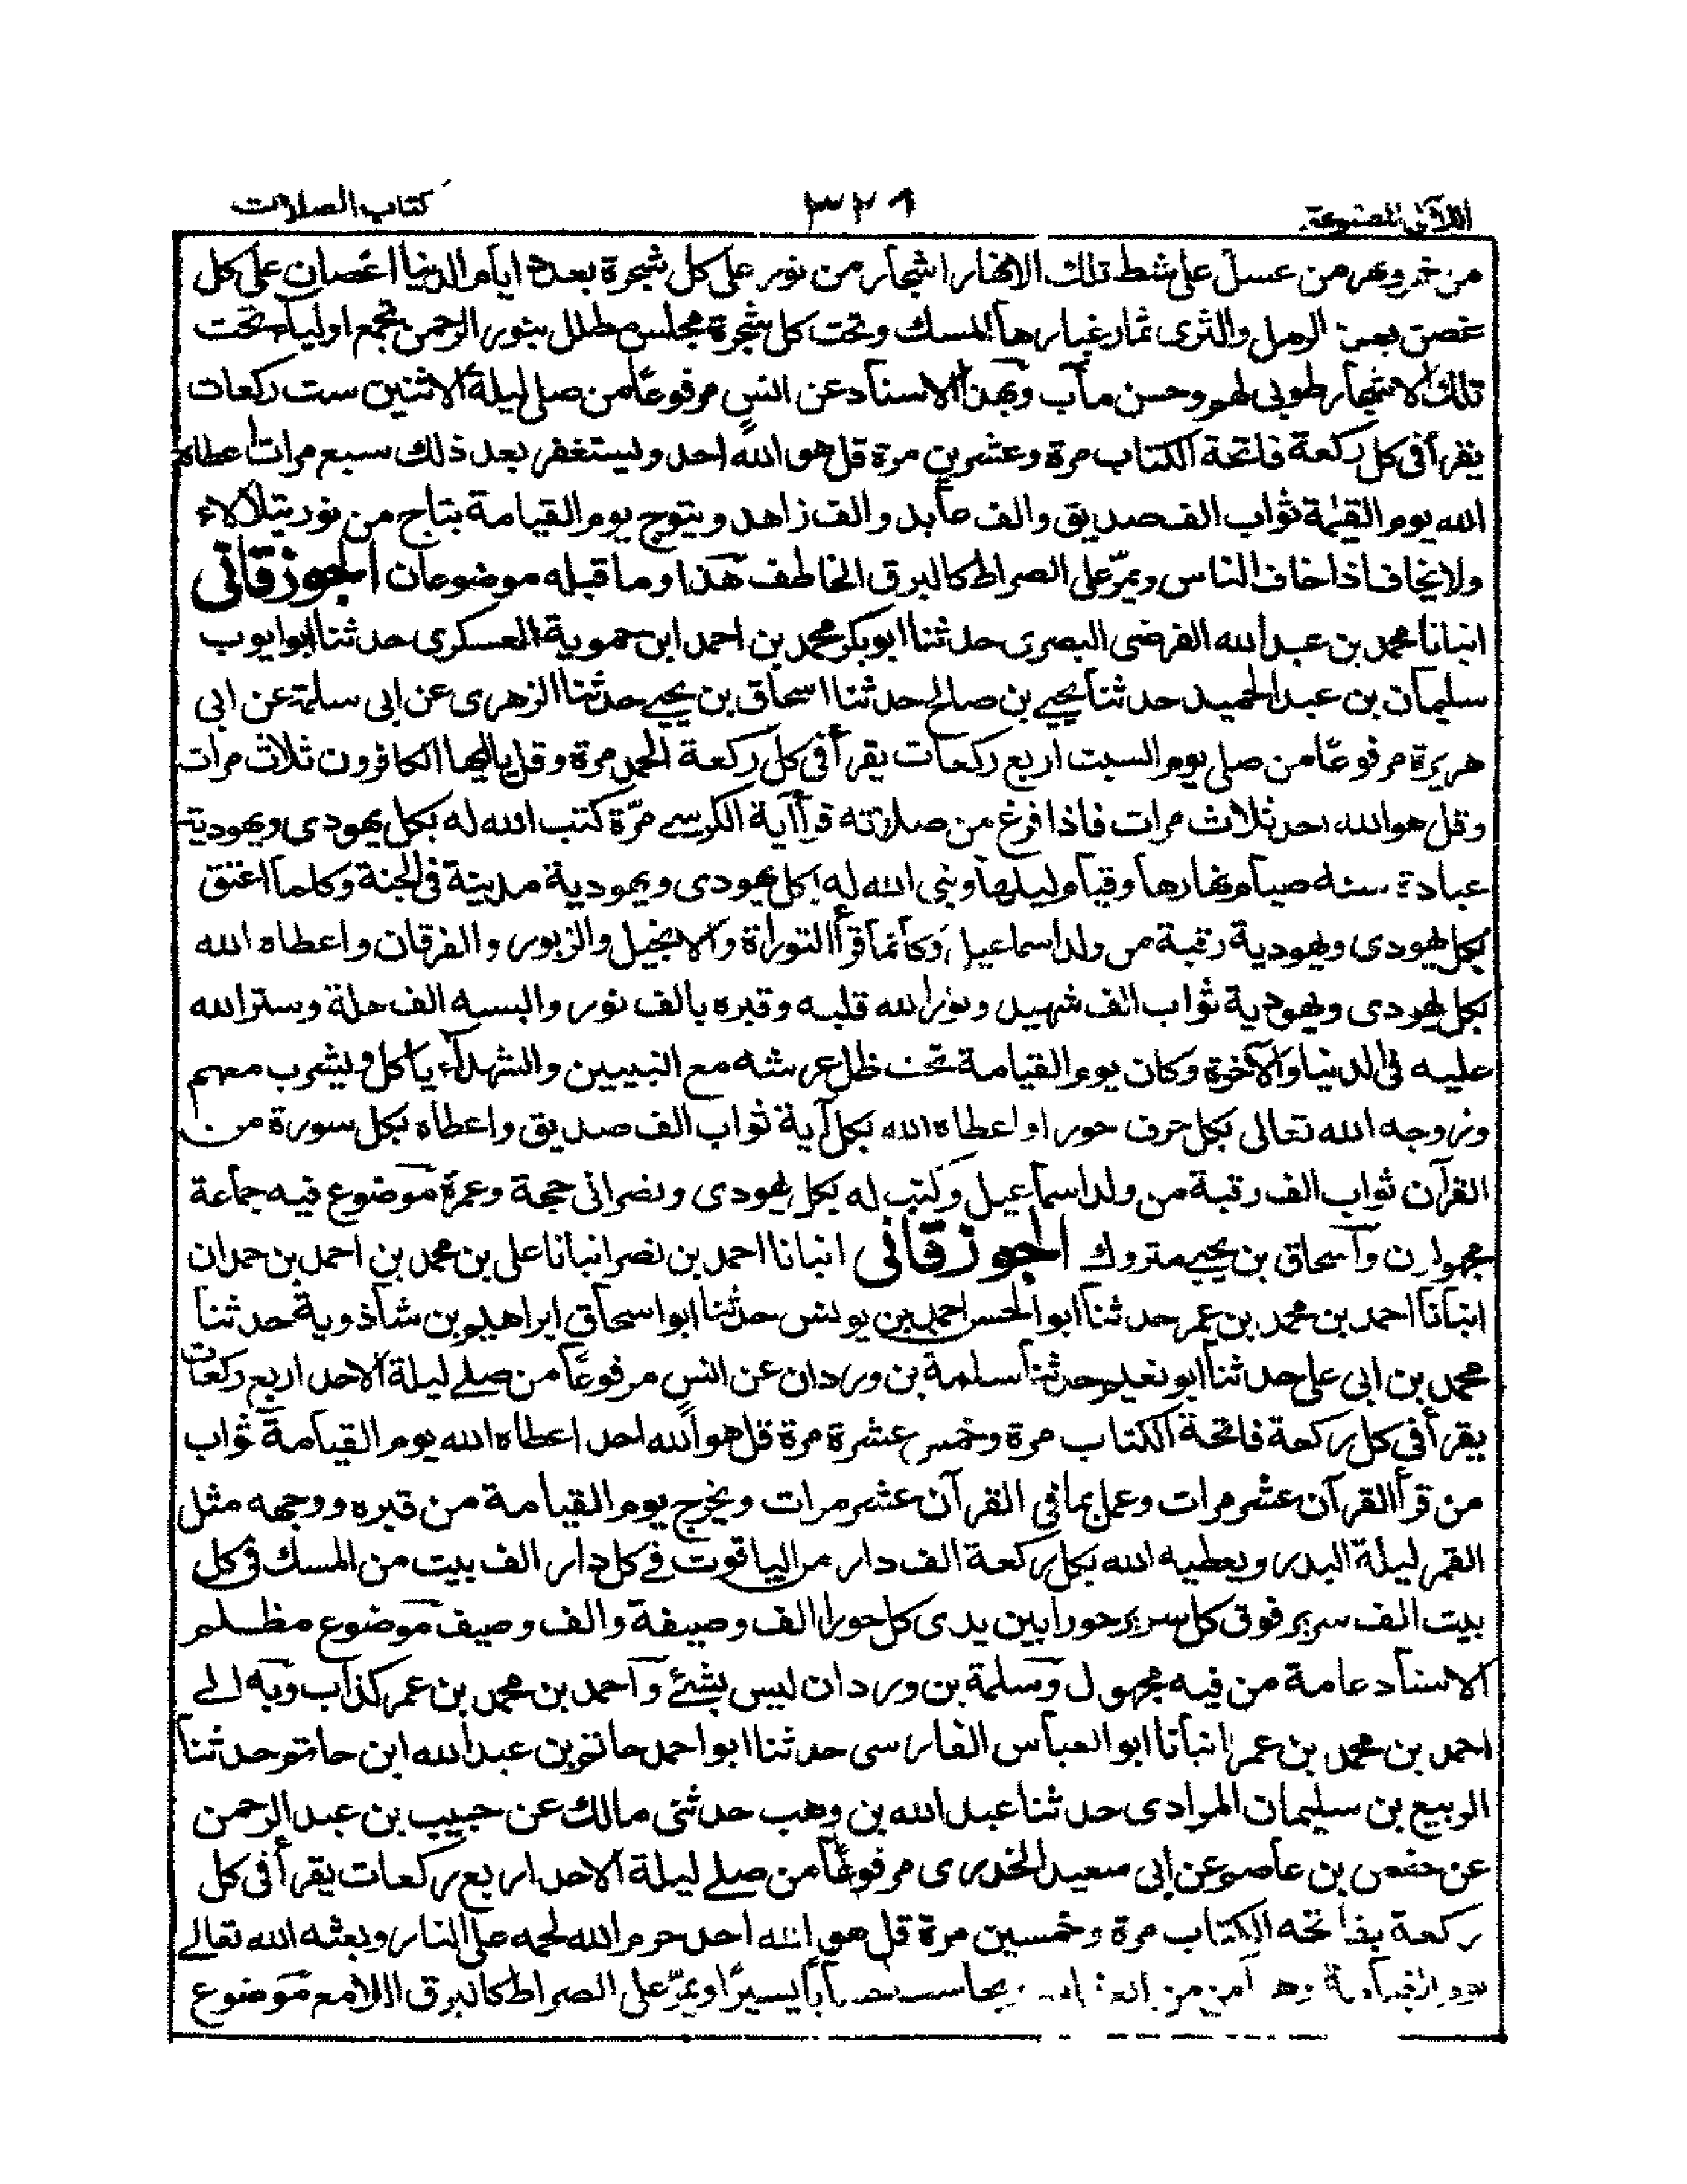 اللآلى المصنوعة
٣٢٩
كتاب الصلات
من خمر ونهر من عسل على شط تلك الانهار اشجار من نور على كل شجرة بعدد ايام الدنيا اغصان على كل
غصن بعدد الرمل والثرى ثمار غبارها المسك وتحت كل شجرة مجلس مظلل بنور الرحمن تجمع اولياء تحت
تلك الاشجار طوبى لهم وحسن مآب وبهذا الاسناد عن انس مرفوعًا من صلى ليلة الاثنين ست ركعات
يقرأ فى كل ركعة فاتحة الكتاب مرة وعشرين مرة قل هو الله احد ويستغفر بعد ذلك سبع مرات اعطاه
الله يوم القيٰمة ثواب الف صديق والف عابد والف زاهد ويتوج يوم القيامة بتاج من نور يتلألاء
ولا يخاف اذا خاف الناس ويمرّ على الصراط كالبرق الخاطف هذا وما قبله موضوعان الجوزقانى
انبانا محمد بن عبد الله الفرضى البصرى حدثنا ابو بكر محمد بن احمد ابن حموية العسكرى حدثنا ابو ايوب
سليمان بن عبد الحميد حدثنا يحيى بن صالح حدثنا اسحاق بن يحيے حدثنا الزهرى عن ابى سلمة عن ابى
هريرة مرفوعًا من صلى يوم السبت اربع ركعات يقرأ فى كل ركعة الحمد مرة وقل يا ايها الكافرون ثلاث مرات
وقل هو الله احد ثلاث مرات فاذا فرغ من صلاته قرأ آية الكرسے مرّة كتب الله له بكل يهودى ويهودية
عبادة سنة صيام نهارها وقيام ليلها وبنى الله له بكل يهودى ويهودية مدينة فى الجنة وكلما اعتق
بكل يهودى ويهودية رقبة من ولد اسماعيل وكأنما قرأ التوراة والانجيل والزبور والفرقان واعطاه الله
بكل يهودى ويهودية ثواب الف شهيد ونور الله قلبه وقبره بالف نور والبسه الف حلة وستر الله
عليه فى الدنيا والآخرة وكان يوم القيامة تحت ظل عرشه مع النبيين والشهدآء يأكل ويشرب معهم
وزوجه الله تعالى بكل حرف حورا واعطاه الله بكل آية ثواب الف صديق واعطاه بكل سورة من
القرآن ثواب الف رقبة من ولد اسماعيل وكتب له بكل يهودى ونصرانى حجة وعمرة موضوع فيه جماعة
مجهولون واسحاق بن يحيے متروك الجوزقانى انبانا احمد بن نصر انبانا على بن محمد بن احمد بن حمدان
انبانا احمد بن محمد بن عمر حدثنا ابو الحسن احمد بن يونس حدثنا ابو اسحاق ابراهيم بن شاذوية حدثنا
محمد بن ابى على حدثنا ابو نعيم حدثنا سلمة بن وردان عن انس مرفوعًا من صلے ليلة الاحد اربع ركعات
يقرأ فى كل ركعة فاتحة الكتاب مرة وخمس عشرة مرة قل هو الله احد اعطاه الله يوم القيامة ثواب
من قرأ القرآن عشر مرات وعمل بما فى القرآن عشر مرات ويخرج يوم القيامة من قبره ووجهه مثل
القمر ليلة البدر ويعطيه الله بكل ركعة الف دار من الياقوت فے كل دار الف بيت من المسك فى كل
بيت الف سرير فوق كل سرير حورا بين يدى كل حورا الف وصيفة والف وصيف موضوع مظلم
الاسناد عامة من فيه مجهول وسلمة بن وردان ليس بشئ واحمد بن محمد بن عمر كذاب وبه الے
احمد بن محمد بن عمر انبانا ابو العباس الفارسى حدثنا ابو احمد حاتم بن عبد الله ابن حاتم حدثنا
الربيع بن سليمان المرادى حدثنا عبد الله بن وهب حدثنى مالك عن حبيب بن عبد الرحمن
عن حفص بن عاصم عن ابى سعيد الخدرى مرفوعًا من صلے ليلة الاحد اربع ركعات يقرأ فى كل
ركعة بفاتحه الكتاب مرة وخمسين مرة قل هو الله احد حرم الله لحمه على النار وبعثه الله تعالے
يوم القيامة وهو آمن من يحاسب حسابًا يسيرًا ويمرّ على الصراط كالبرق اللامع موضوع